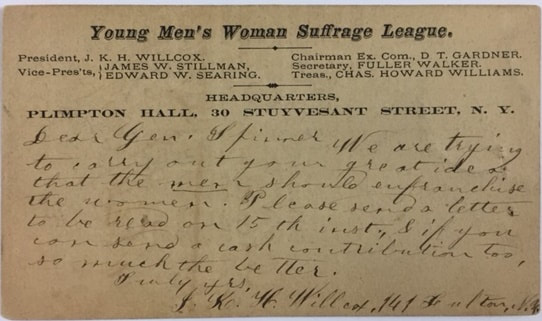 Young Men's Woman Suffrage League.
President, J. K. H. WILLCOX.
Vice-Pres'ts, } JAMES W. STILLMAN,
EDWARD W. SEARING.
Chairman Ex. Com., D. T. GARDNER.
Secretary, FULLER WALKER.
Treas., CHAS. HOWARD WILLIAMS.
HEADQUARTERS,
PLIMPTON HALL, 30 STUYVESANT STREET, N. Y.
Dear Gen. Spinner We are trying
to carry out your great idea
that the men should enfranchise
the women. Please send a letter
to be read on 15th inst, & if you
can send a cash contribution too,
so much the better.
Truly yrs,
J. K. H. Willcox, 141 Fulton, N.Y.